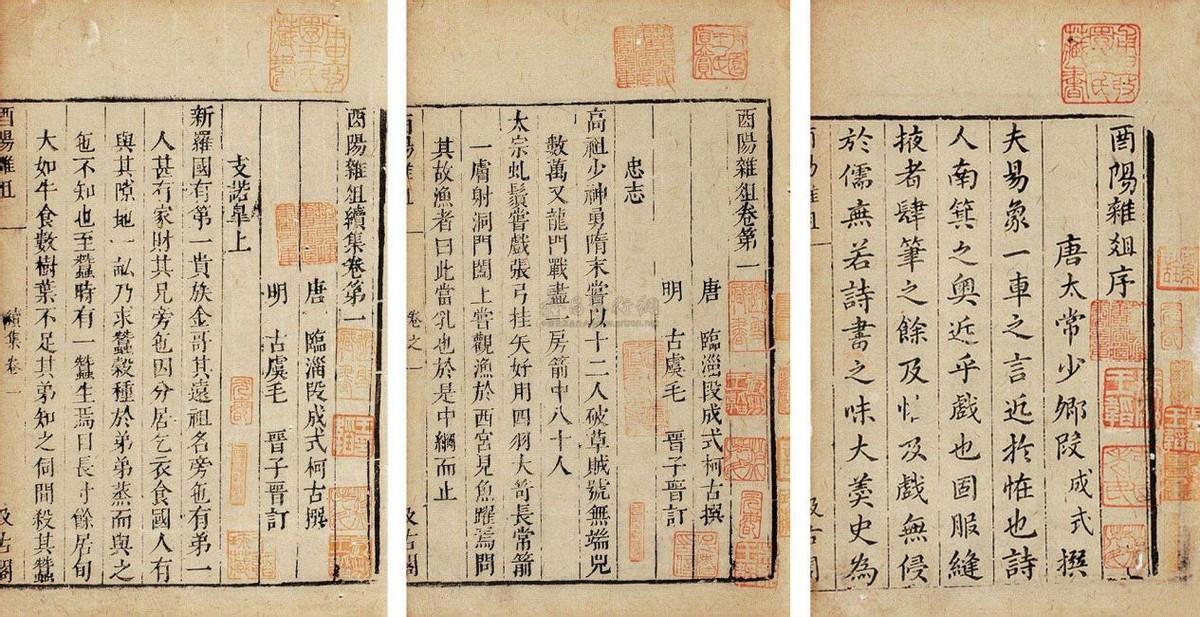 酉陽雜俎序
唐太常少卿段成式撰
夫易象一車之言近於怪也詩
人南箕之奧近乎戲也固服縫
掖者肆筆之餘及怪及戲無侵
於儒無若詩書之味大羹史為
酉陽雜俎卷第一
唐 臨淄段成式柯古撰
明 古虞毛 晉子晉訂
忠志
高祖少神勇隋末嘗以十二人破草賊號無端兒
數萬又龍門戰盡一房箭中八十人
太宗虬鬚嘗戲張弓挂矢好用四羽大笴長常箭
一膚射洞門闔上嘗觀漁於西宮見魚躍焉問
其故漁者曰此當乳也於是中網而止
酉陽雜俎 卷之一 汲古閣
酉陽雜俎續集卷第一
唐 臨淄段成式柯古撰
明 古虞毛 晉子晉訂
支諾皋上
新羅國有第一貴族金哥其遠祖名旁㐌有弟一
人甚有家財其兄旁㐌因分居乞衣食國人有
與其隙地一畝乃求蠶穀種於弟弟蒸而與之
㐌不知也至蠶時有一蠶生焉日長寸餘居旬
大如牛食數樹葉不足其弟知之伺間殺其蠶
酉陽雜俎 續集卷一 汲古閣